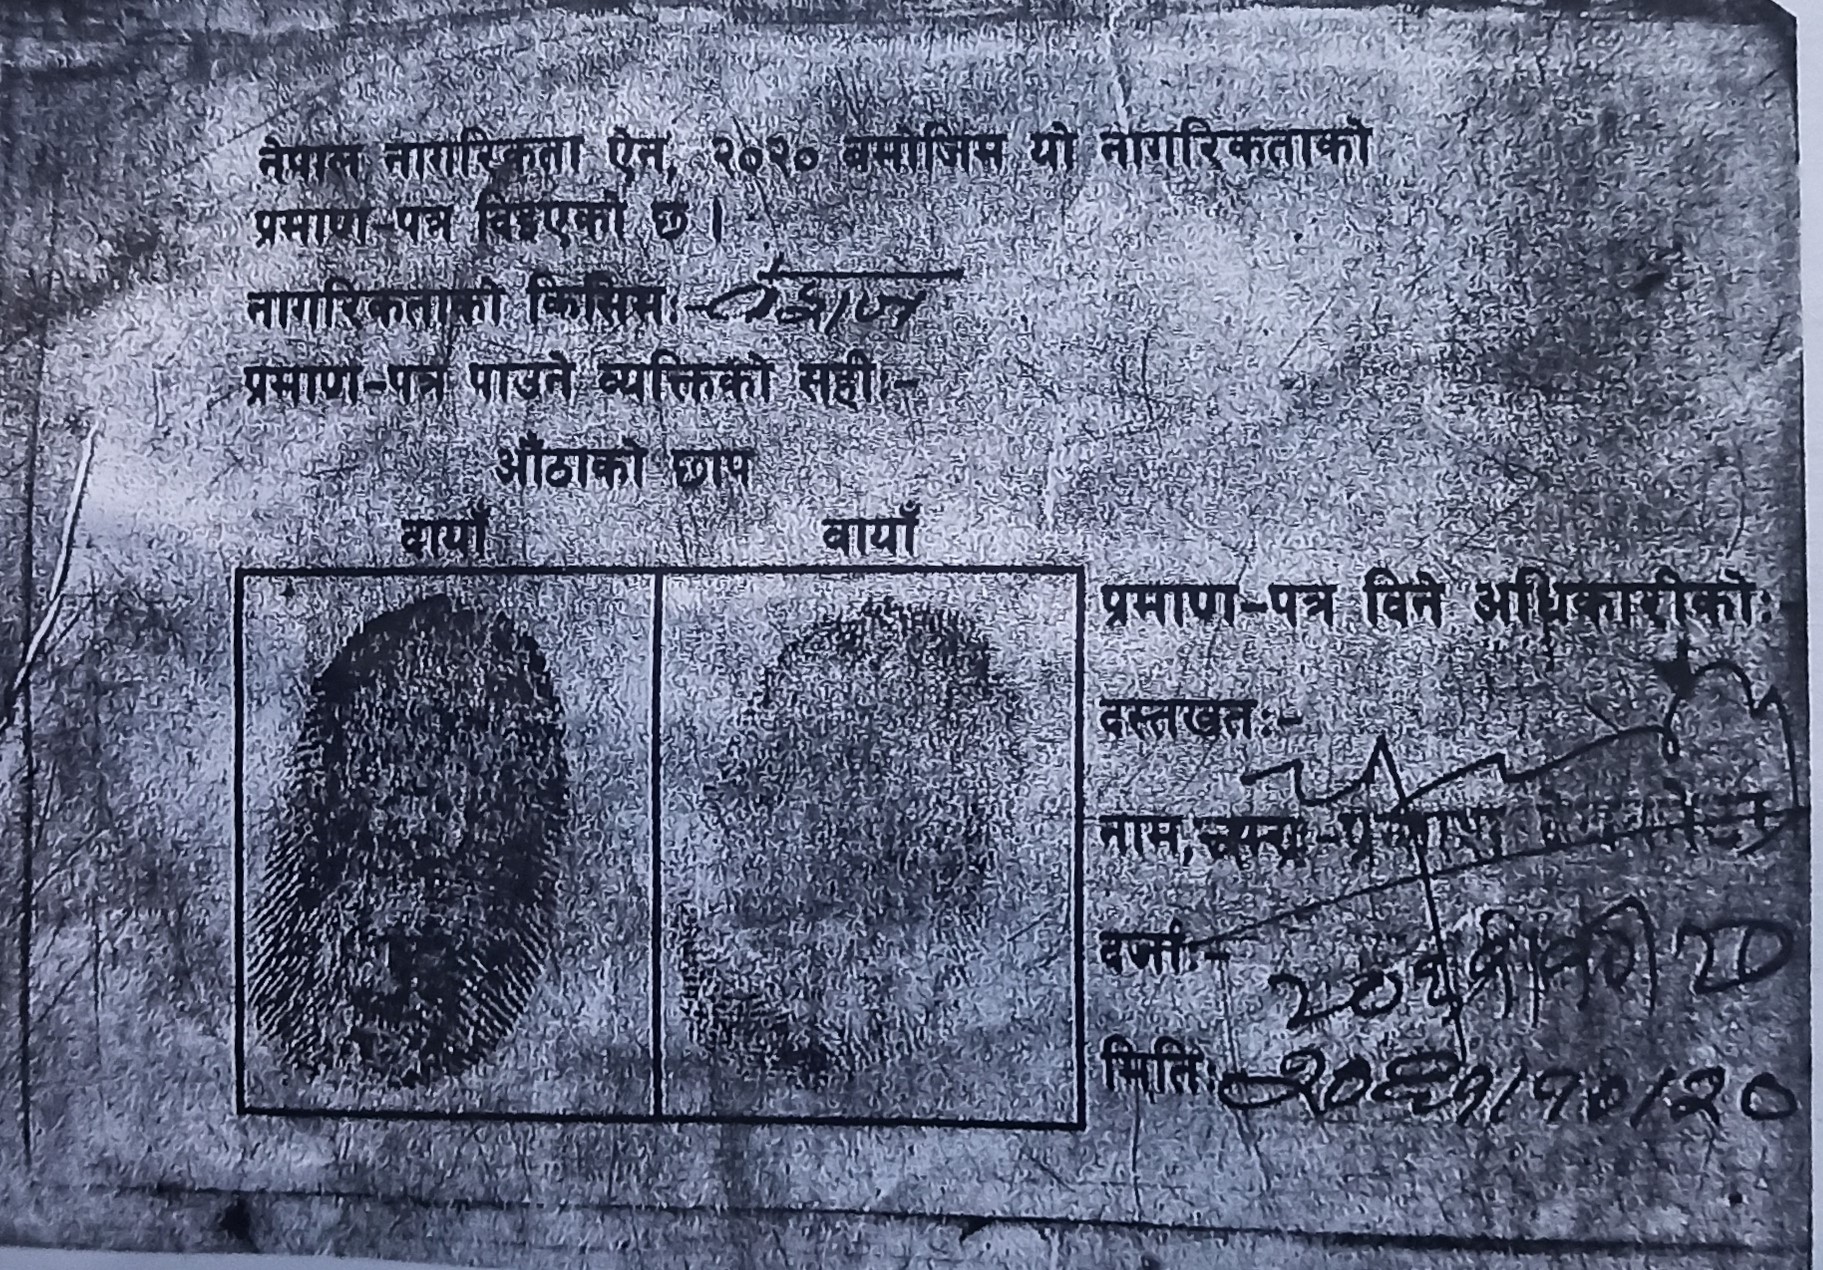 नेपाल नागरिकता ऐन, २०२० बमोजिम यो नागरिकताको
प्रमाण-पत्र दिइएको छ ।
नागरिकताको किसिमः- वंशज
प्रमाण-पत्र पाउने व्यक्तिको सहीः-
औंठाको छाप
दायाँ बायाँ
प्रमाण-पत्र दिने अधिकारीकोः
दस्तखतः-
नाम,
दर्जाः-
मितिः